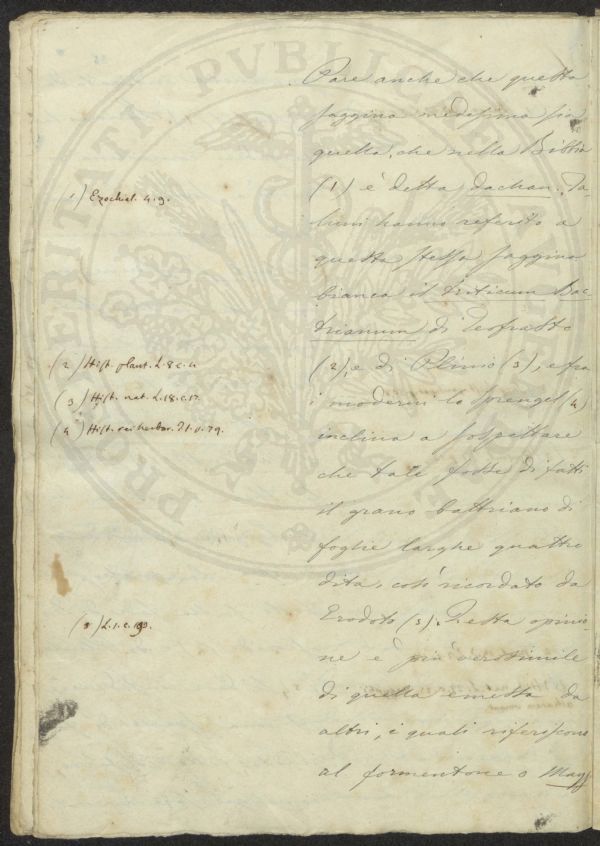 Pare anche che questa
saggina medesima sia
quella, che nella Bibbia
(1) è detta dachan. Ta-
luni hanno riferito a
questa stessa saggina
bianca il triticum Bac-
trianum di Teofrasto
(2), e di Plinio (3), e fra
i moderni lo Sprengel (4)
inclina a sospettare
che tale fosse di fatti
il grano battriano di
foglie larghe quattro
dita, così ricordato da
Erodoto (5). Questa opinio-
ne è più verosimile
di quella emessa da
altri, i quali riferiscono
al formentone o Mays
1) Ezechiel. 4. 9.
(2) Hist. plant. L. 8 c. 4
(3) Hist. nat. L. 18. c. 17.
(4) Hist. rei herbar. I. p. 79.
(5) L. 1. c. 193.
PROSPERITATI PVBLICAE